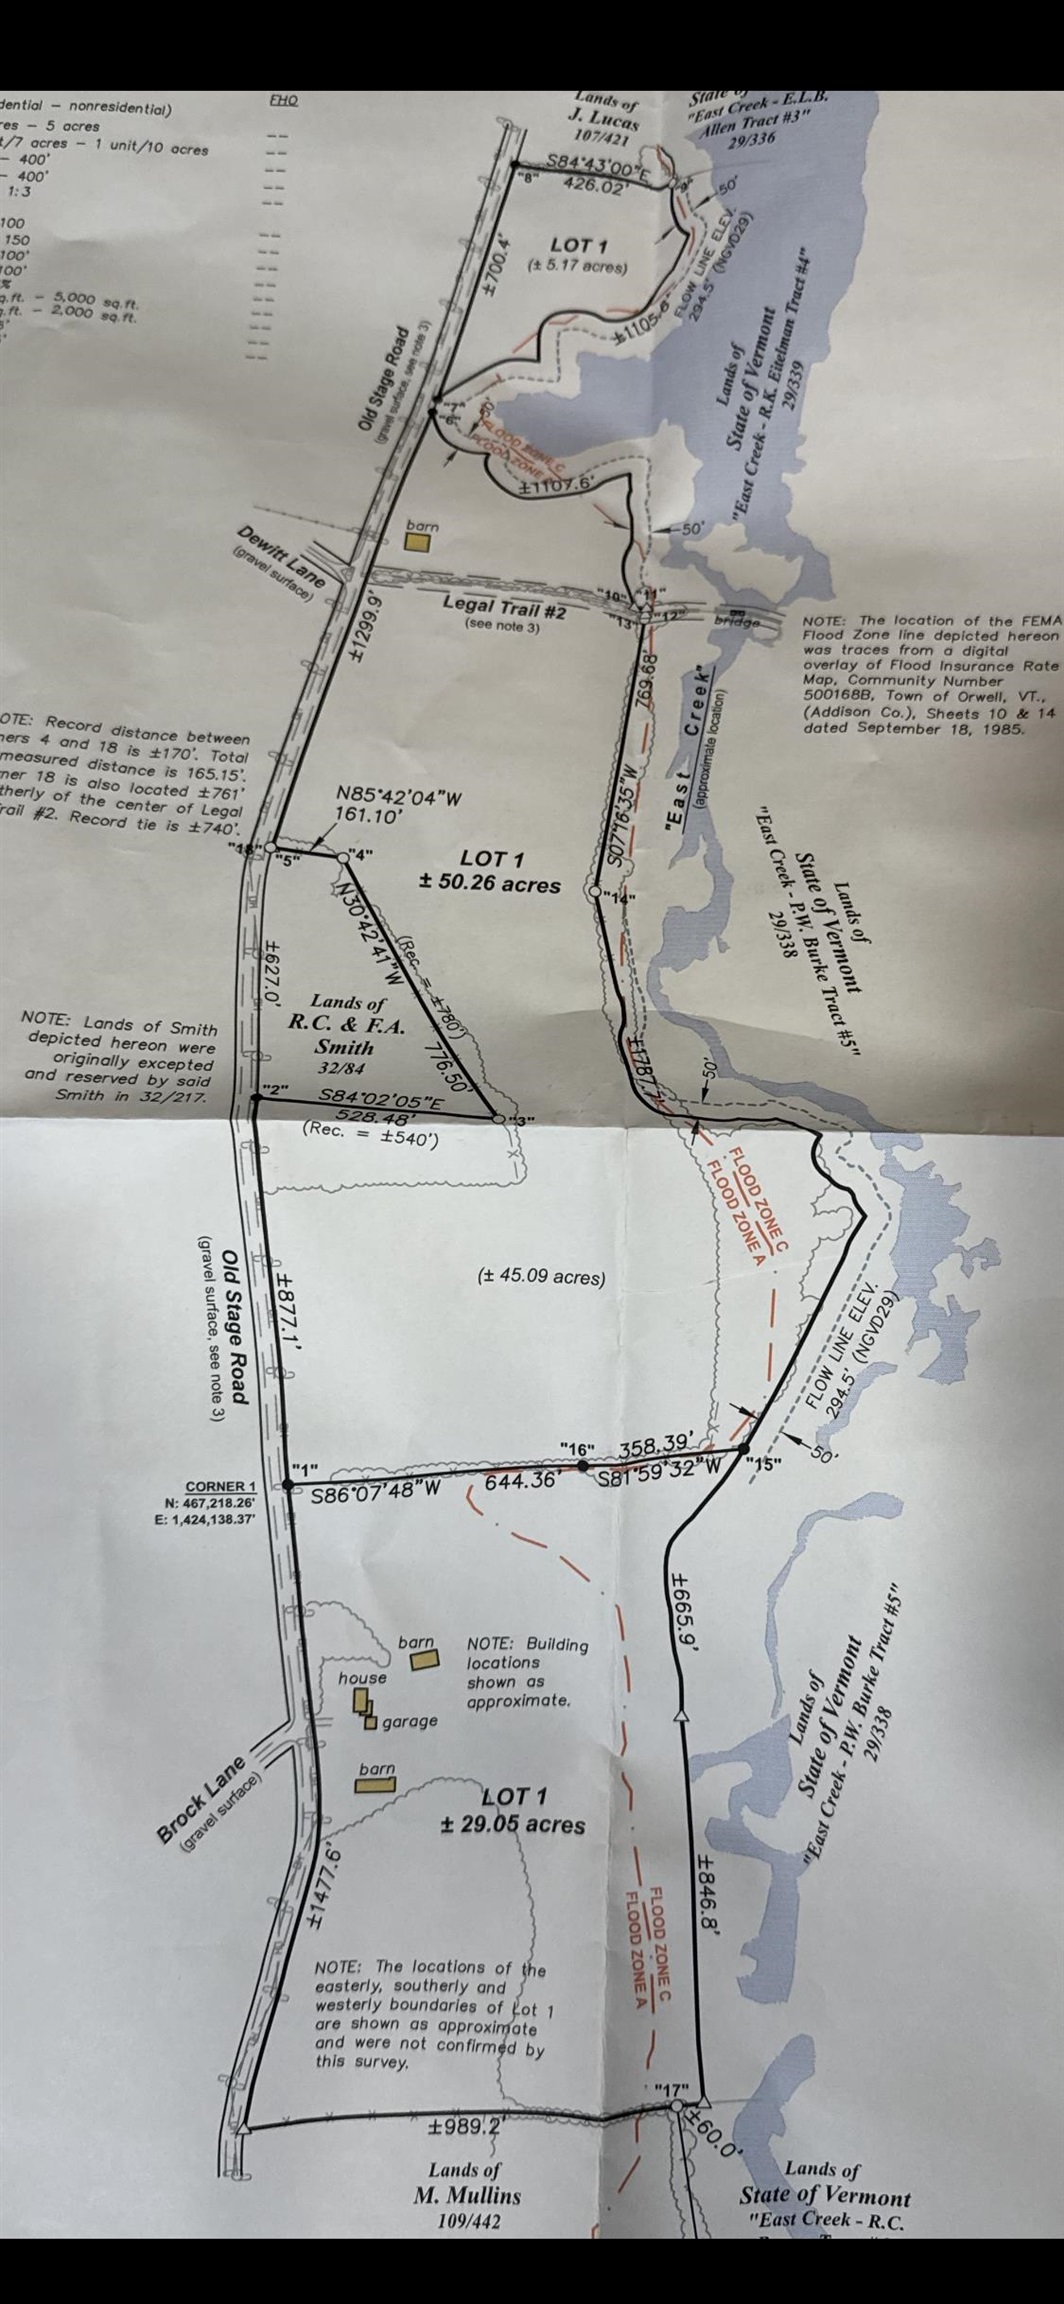 dential - nonresidential)
FHO
res - 5 acres
t/7 acres - 1 unit/10 acres
- 400'
- 400'
1:3
100
150
100'
100'
%
q.ft. - 5,000 sq.ft.
q.ft. - 2,000 sq.ft.
Lands of
J. Lucas
107/421
State of
"East Creek - E.L.B.
Allen Tract #3"
29/336
"8"
S84°43'00"E
426.02'
50'
LOT 1
(± 5.17 acres)
±700.4'
FLOW LINE ELEV.
294.5' (NGVD29)
±1105.6'
Old Stage Road
(gravel surface, see note 3)
Lands of
State of Vermont
"East Creek - R.K. Eitelman Tract #4"
29/339
"7"
"6"
50'
FLOOD ZONE C
FLOOD ZONE A
±1107.6'
50'
barn
Dewitt Lane
(gravel surface)
±1299.9'
Legal Trail #2
(see note 3)
"10"
"11"
"12"
"13"
bridge
NOTE: The location of the FEMA
Flood Zone line depicted hereon
was traces from a digital
overlay of Flood Insurance Rate
Map, Community Number
500168B, Town of Orwell, VT.,
(Addison Co.), Sheets 10 & 14
dated September 18, 1985.
769.68'
S07°16'35"W
"East Creek"
(approximate location)
OTE: Record distance between
ners 4 and 18 is ±170'. Total
measured distance is 165.15'.
ner 18 is also located ±761'
therly of the center of Legal
rail #2. Record tie is ±740'.
N85°42'04"W
161.10'
"18"
"5"
"4"
LOT 1
± 50.26 acres
"14"
Lands of
State of Vermont
"East Creek - P.W. Burke Tract #5"
29/338
N30°42'41"W
(Rec. = ±780')
776.50'
±627.0'
Lands of
R.C. & F.A.
Smith
32/84
NOTE: Lands of Smith
depicted hereon were
originally excepted
and reserved by said
Smith in 32/217.
±1787.7'
50'
"2"
S84°02'05"E
528.48'
(Rec. = ±540')
"3"
FLOOD ZONE C
FLOOD ZONE A
Old Stage Road
(gravel surface, see note 3)
±877.1'
(± 45.09 acres)
FLOW LINE ELEV.
294.5' (NGVD29)
50'
"1"
"16"
358.39'
"15"
S86°07'48"W
644.36'
S81°59'32"W
CORNER 1
N: 467,218.26'
E: 1,424,138.37'
±665.9'
barn
NOTE: Building
locations
shown as
approximate.
house
garage
barn
Brock Lane
(gravel surface)
LOT 1
± 29.05 acres
Lands of
State of Vermont
"East Creek - P.W. Burke Tract #5"
29/338
±1477.6'
±846.8'
FLOOD ZONE C
FLOOD ZONE A
NOTE: The locations of the
easterly, southerly and
westerly boundaries of Lot 1
are shown as approximate
and were not confirmed by
this survey.
"17"
±989.2'
±60.0'
Lands of
M. Mullins
109/442
Lands of
State of Vermont
"East Creek - R.C.